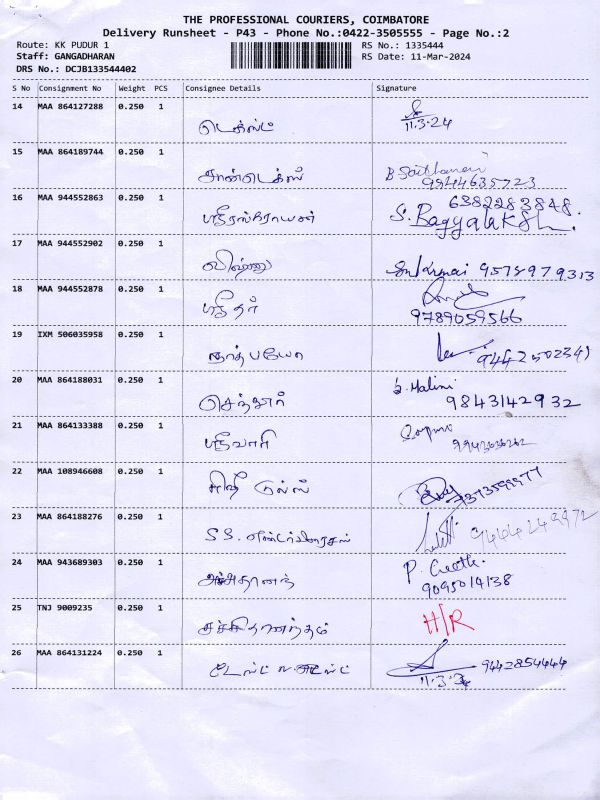 THE PROFESSIONAL COURIERS, COIMBATORE
Delivery Runsheet - P43 - Phone No.:0422-3505555 - Page No.:2
Route: KK PUDUR 1 RS No.: 1335444
Staff: GANGADHARAN RS Date: 11-Mar-2024
DRS No.: DCJB133544402
S No Consignment No Weight PCS Consignee Details Signature
14 MAA 864127288 0.250 1
டெக்ஸ்ட் 11.3.24
15 MAA 864189744 0.250 1
சான்டெக்ஸ் 9944635723
16 MAA 944552863 0.250 1 6382283848.
S. Bagyalaksh
17 MAA 944552902 0.250 1
விஷ்ணு 9578979313
18 MAA 944552878 0.250 1
ஸ்ரீதர் 9789059566
19 IXM 506035958 0.250 1
நாத்பயோ 9442502341
20 MAA 864188031 0.250 1 S. Malini
செந்தூர் 9843142932
21 MAA 864133388 0.250 1
ஸ்ரீவாரி 9943036262
22 MAA 108946608 0.250 1
டூல்ஸ் 9373599977
23 MAA 864188276 0.250 1
S.S. எண்டர்பிரைசஸ் 9444249972
24 MAA 943689303 0.250 1 P. Geetha
9095014138
25 TNJ 9009235 0.250 1
சச்சிதானந்தம் H/R
26 MAA 864131224 0.250 1 9442854444
11.3.24